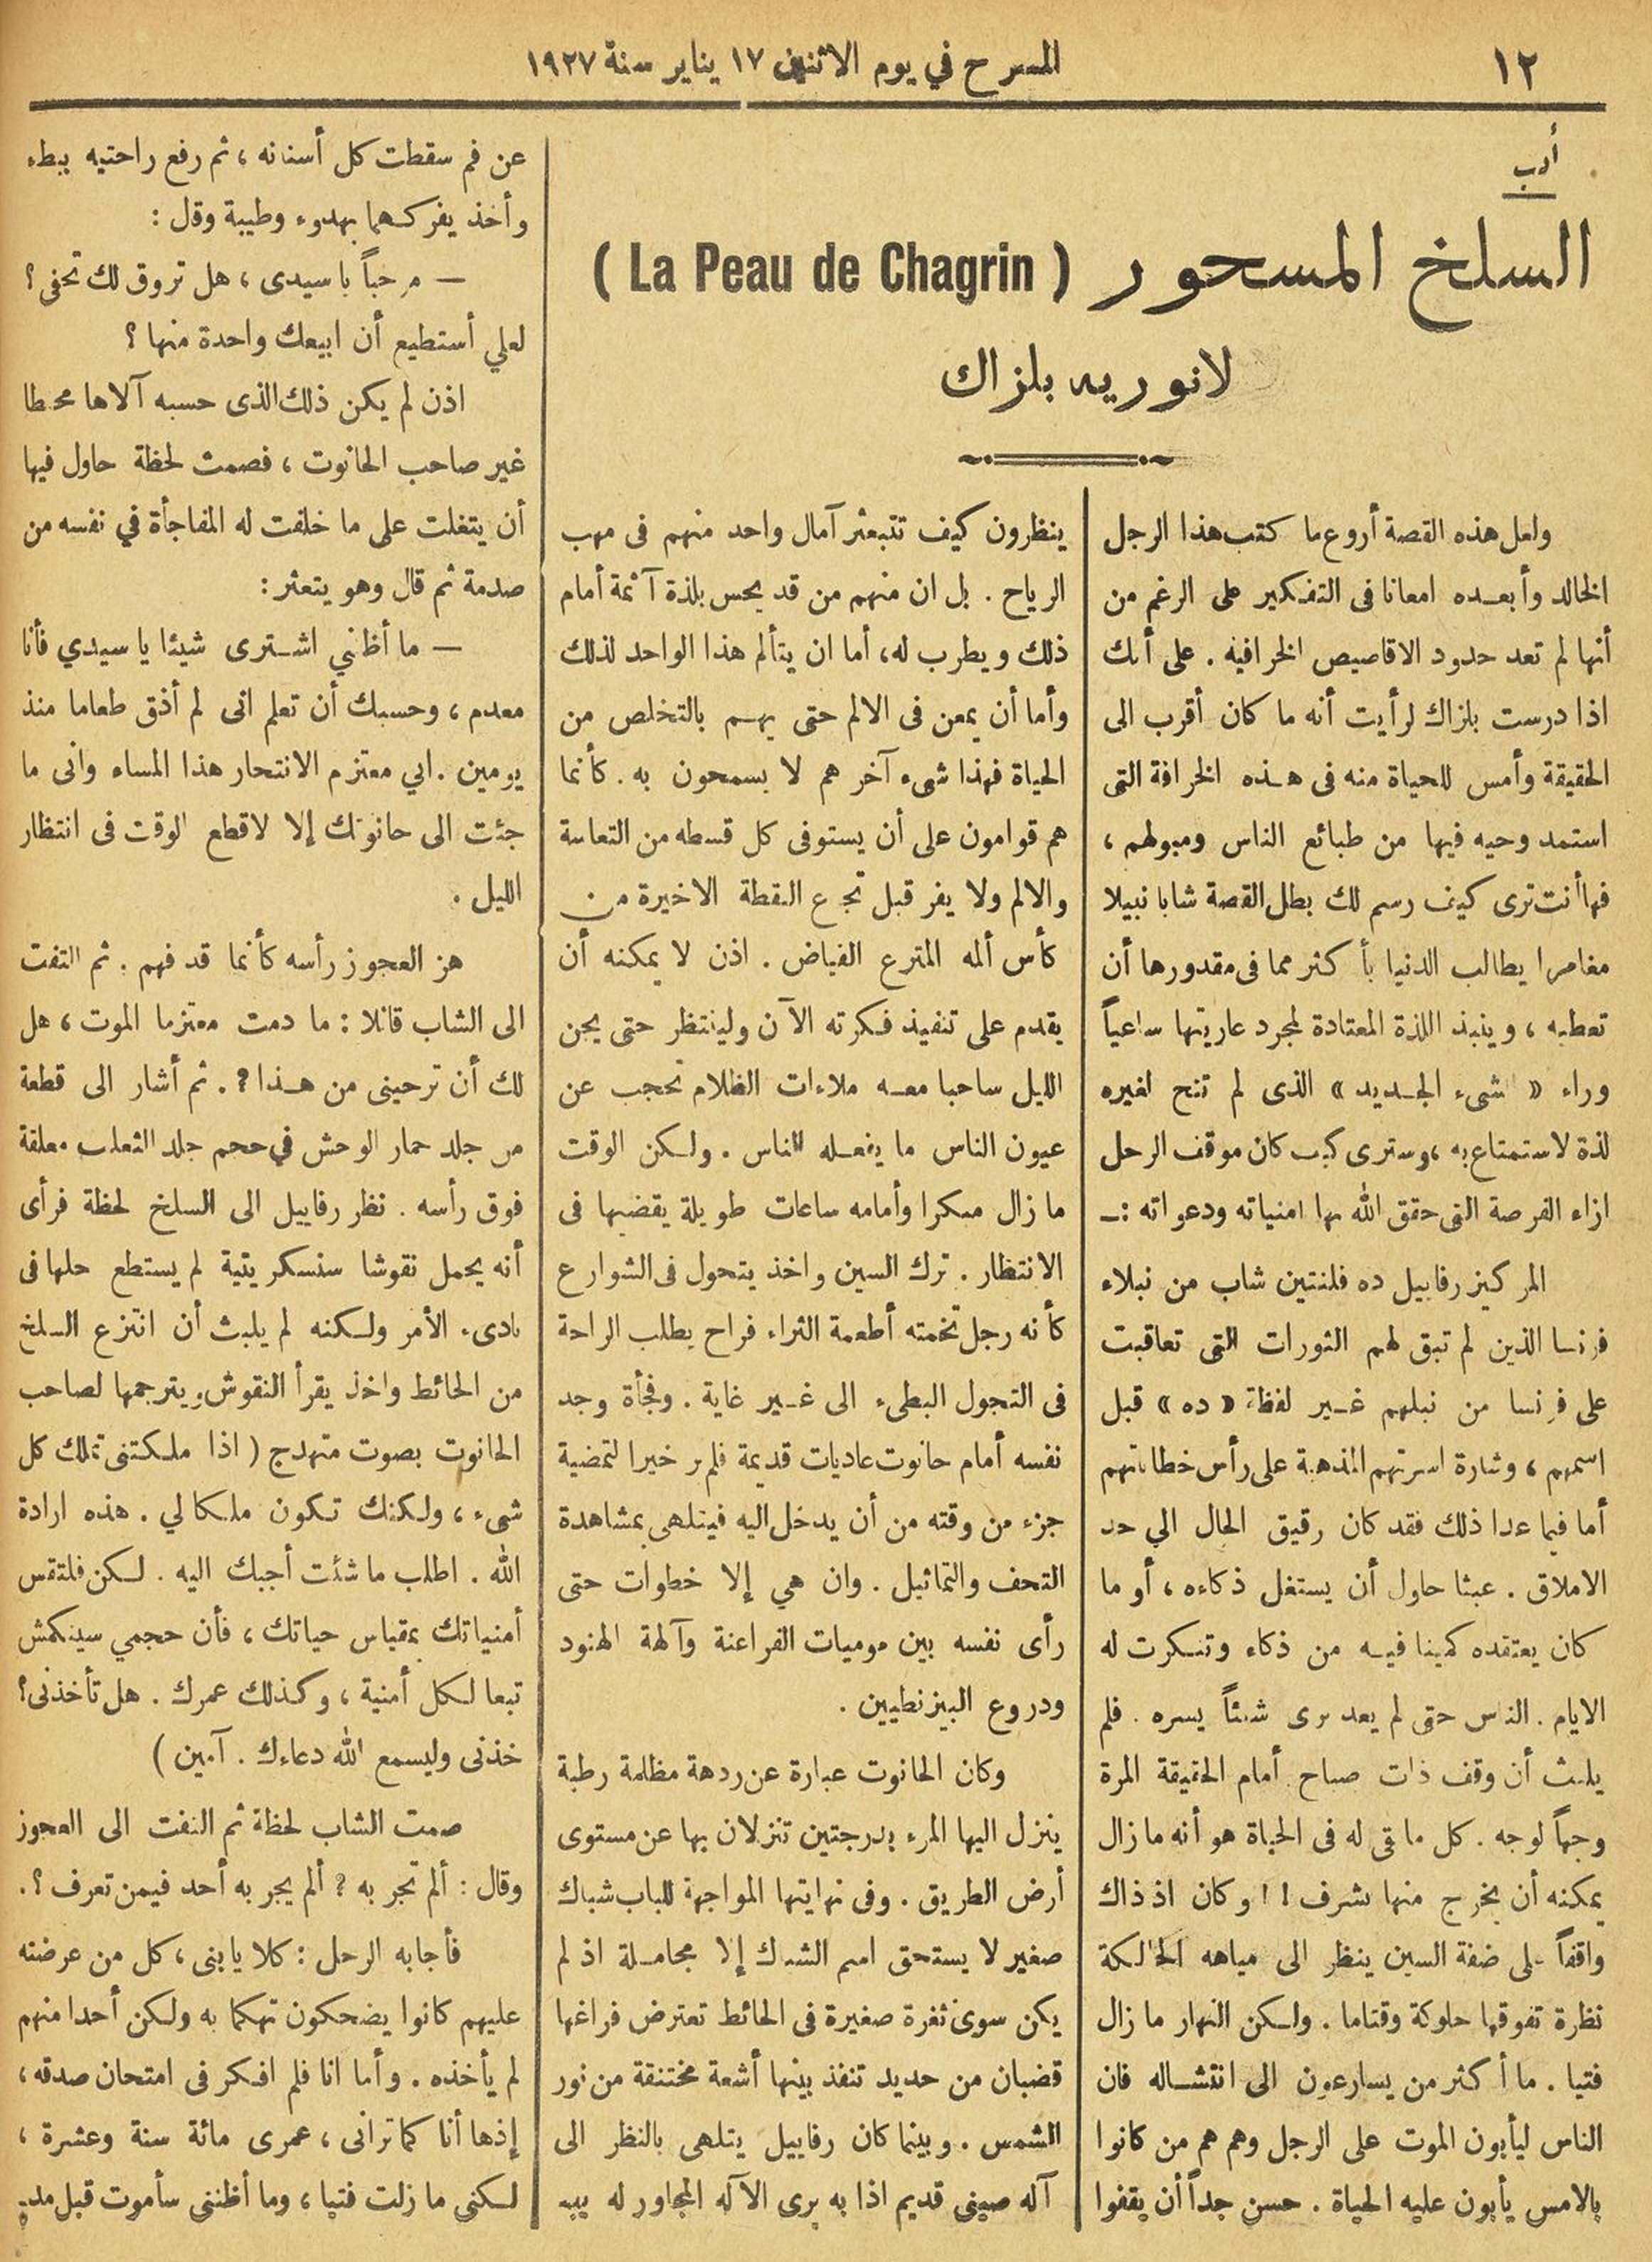 ١٢
المسرح في يوم الاثنين ١٧ يناير سنة ١٩٢٧
أدب
السلخ المسحور ( La Peau de Chagrin )
لانوريه بلزاك
ولعل هذه القصة أروع ما كتب هذا الرجل
الخالد وأبعده امعانا فى التفكير على الرغم من
أنها لم تعد حدود الاقاصيص الخرافية . على أنك
اذا درست بلزاك لرأيت أنه ما كان أقرب الى
الحقيقة وأمس للحياة منه فى هذه الخرافة التى
استمد وحيه فيها من طبائع الناس وميولهم ،
فهاأنت ترى كيف رسم لك بطل القصة شابا نبيلا
مغامرا يطالب الدنيا بأكثر مما فى مقدورها أن
تعطيه ، وينبذ اللذة المعتادة لمجرد عاريتها ساعياً
وراء « الشىء الجديد » الذى لم تتح لغيره
لذة لاستمتاع به ، وسترى كيف كان موقف الرجل
ازاء الفرصة التى حقق الله بها امنياته ودعواته :ـ
المركيز رفاييل ده فلنتين شاب من نبلاء
فرنسا الذين لم تبق لهم الثورات التى تعاقبت
على فرنسا من نبلهم غير لفظة « ده » قبل
اسمهم ، وشارة اسرتهم المذهبة على رأس خطاباتهم
أما فيما عدا ذلك فقد كان رقيق الحال الي حد
الاملاق . عبثا حاول أن يستغل ذكاءه ، أو ما
كان يعتقده كمينا فيه من ذكاء وتنكرت له
الايام . الناس حتى لم يعد يرى شيئاً يسره . فلم
يلبث أن وقف ذات صباح أمام الحقيقة المرة
وجهاً لوجه . كل ما بقى له فى الحياة هو أنه ما زال
يمكنه أن يخرج منها بشرف ! ! وكان اذ ذاك
واقفاً على ضفة السين ينظر الى مياهه الحالكة
نظرة تفوقها حلوكة وقتاما . ولكن النهار ما زال
فتيا . ما أكثر من يسارعون الى انتشاله فان
الناس ليأبون الموت على الرجل وهم هم من كانوا
بالامس يأبون عليه الحياة . حسن جداً أن يقفوا
ينظرون كيف تتبعثر آمال واحد منهم فى مهب
الرياح . بل ان منهم من قد يحس بلذة آثمة أمام
ذلك ويطرب له ، أما ان يتألم هذا الواحد لذلك
وأما أن يمعن فى الالم حتى يهم بالتخلص من
الحياة فهذا شىء آخر هم لا يسمحون به . كأنما
هم قوامون على أن يستوفى كل قسطه من التعاسة
والالم ولا يفر قبل تجرع النقطة الاخيرة من
كأس ألمه المترع الفياض . اذن لا يمكنه أن
يقدم على تنفيذ فكرته الآن ولينتظر حتى يجن
الليل ساحبا معه ملاءات الظلام تحجب عن
عيون الناس ما يفعله الناس . ولكن الوقت
ما زال مبكرا وأمامه ساعات طويلة يقضيها فى
الانتظار . ترك السين واخذ يتحول فى الشوارع
كأنه رجل تخمته أطعمة الثراء فراح يطلب الراحة
فى التجول البطىء الى غير غاية . وفجأة وجد
نفسه أمام حانوت عاديات قديمة فلم ير خيرا لتمضية
جزء من وقته من أن يدخل اليه فيتلهى بمشاهدة
التحف والتماثيل . وان هي إلا خطوات حتى
رأى نفسه بين موميات الفراعنة وآلهة الهنود
ودروع البيزنطيين .
وكان الحانوت عبارة عن ردهة مظلمة رطبة
ينزل اليها المرء بدرجتين تنزلان بها عن مستوى
أرض الطريق . وفى نهايتها المواجهة للباب شباك
صغير لا يستحق اسم الشباك إلا مجاملة اذ لم
يكن سوى ثغرة صغيرة فى الحائط تعترض فراغها
قضبان من حديد تنفذ بينها أشعة مختنقة من نور
الشمس . وبينما كان رفاييل يتلهى بالنظر الى
آله صينى قديم اذا به يرى الآله المجاور له
عن فم سقطت كل أسنانه ، ثم رفع راحتيه ببطء
وأخذ يفركهما بهدوء وطيبة وقال :
— مرحباً يا سيدى ، هل تروق لك تحفى ؟
لعلي أستطيع أن ابيعك واحدة منها ؟
اذن لم يكن ذلك الذى حسبه آلاها محطا
غير صاحب الحانوت ، فصمت لحظة حاول فيها
أن يتغلت على ما خلفت له المفاجأة في نفسه من
صدمة ثم قال وهو يتعثر :
— ما أظنني اشترى شيئا يا سيدي فأنا
معدم ، وحسبك أن تعلم انى لم أذق طعاما منذ
يومين . اني معتزم الانتحار هذا المساء وانى ما
جئت الى حانوتك إلا لاقطع الوقت فى انتظار
الليل .
هز العجوز رأسه كأنما قد فهم . ثم التفت
الى الشاب قائلا : ما دمت معتزما الموت ، هل
لك أن ترحينى من هذا ؟ . ثم أشار الى قطعة
من جلد حمار الوحش في حجم جلد الثعلب معلقة
فوق رأسه . نظر رفاييل الى السلخ لحظة فرأى
أنه يحمل نقوشا سنسكريتية لم يستطع حلها فى
بادىء الأمر ولكنه لم يلبث أن انتزع السلخ
من الحائط واخذ يقرأ النقوش ويترجمها لصاحب
الحانوت بصوت متهدج ( اذا ملكتنى تملك كل
شىء ، ولكنك تكون ملكا لي . هذه ارادة
الله . اطلب ما شئت أجبك اليه . لكن فلتقس
أمنياتك بمقياس حياتك ، فأن حجمي سينكمش
تبعا لكل أمنية ، وكذلك عمرك . هل تأخذنى ؟
خذنى وليسمع الله دعاءك . آمين )
صمت الشاب لحظة ثم التفت الى العجوز
وقال : ألم تجر به ؟ ألم يجر به أحد فيمن تعرف ؟ .
فأجابه الرجل : كلا يا بنى ، كل من عرضته
عليهم كانوا يضحكون تهكما به ولكن أحدا منهم
لم يأخذه . وأما انا فلم افكر فى امتحان صدقه ،
إذ ها أنا كما ترانى ، عمرى مائة سنة وعشرة ،
لكني ما زلت فتيا ، وما أظننى سأموت قبل مدة